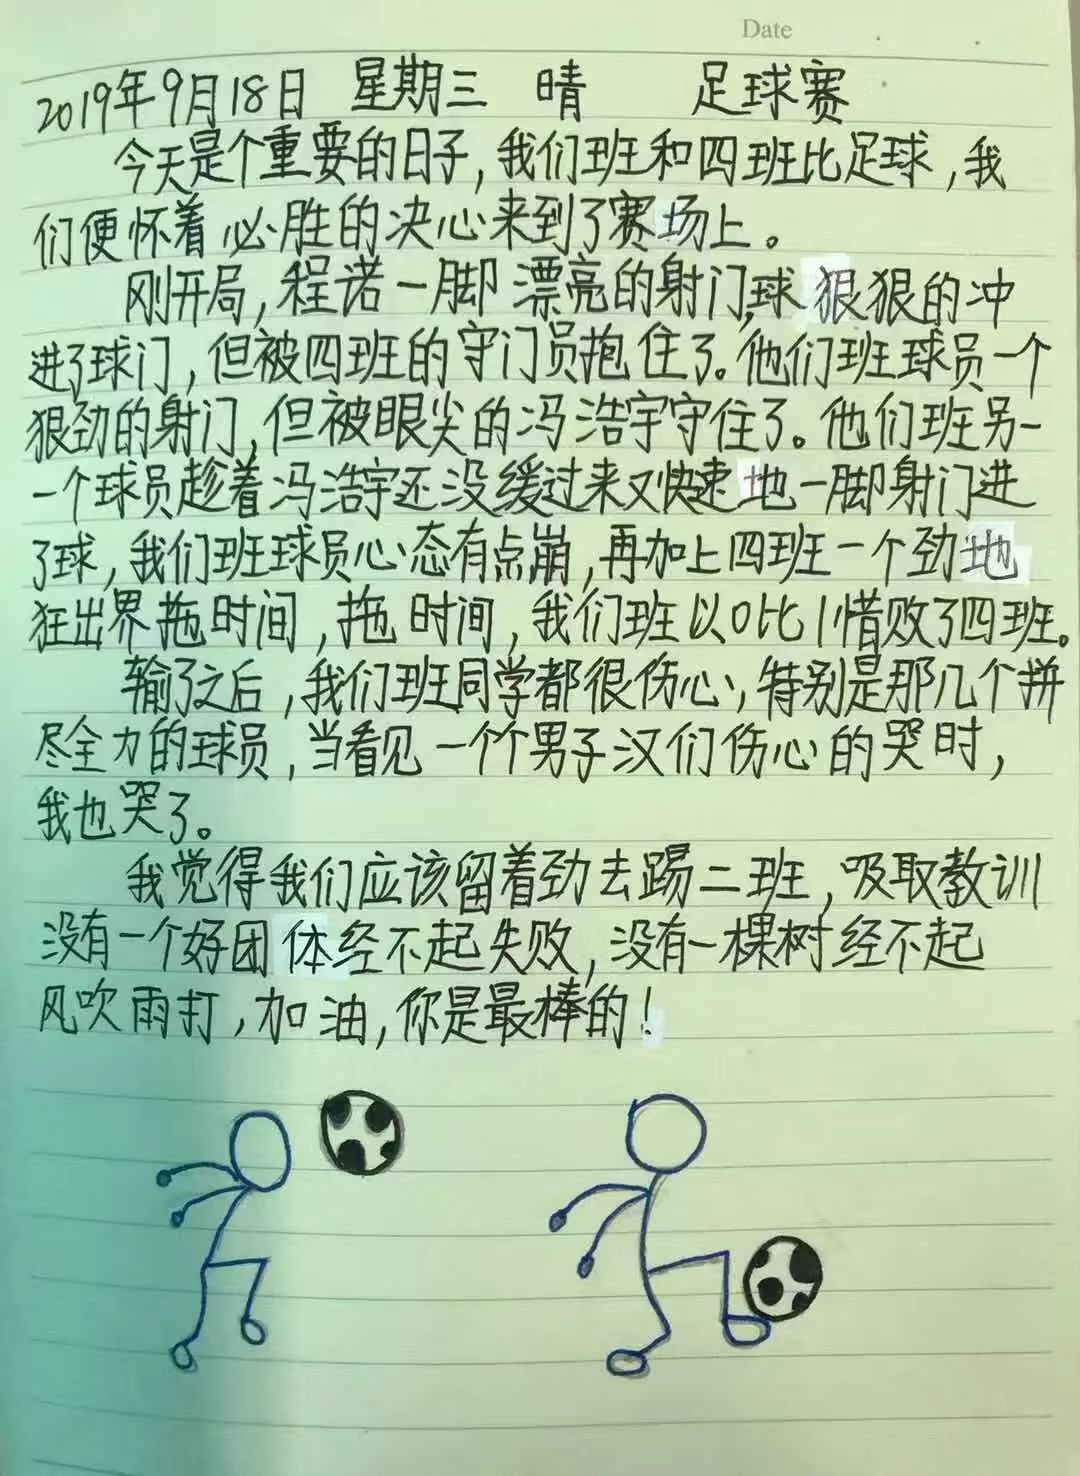 Date
2019年9月18日 星期三 晴 足球赛
今天是个重要的日子，我们班和四班比足球，我
们便怀着必胜的决心来到了赛场上。
刚开局，程诺一脚漂亮的射门，球狠狠的冲
进了球门，但被四班的守门员抱住了。他们班球员一个
狠劲的射门，但被眼尖的冯浩宇守住了。他们班另一
一个球员趁着冯浩宇还没缓过来又快速地一脚射门进
了球，我们班球员心态有点崩，再加上四班一个劲地
狂出界拖时间，拖时间，我们班以0比1惜败了四班。
输了之后，我们班同学都很伤心，特别是那几个拼
尽全力的球员，当看见一个个男子汉们伤心的哭时，
我也哭了。
我觉得我们应该留着劲去踢二班，吸取教训
没有一个好团体经不起失败，没有一棵树经不起
风吹雨打，加油，你是最棒的！